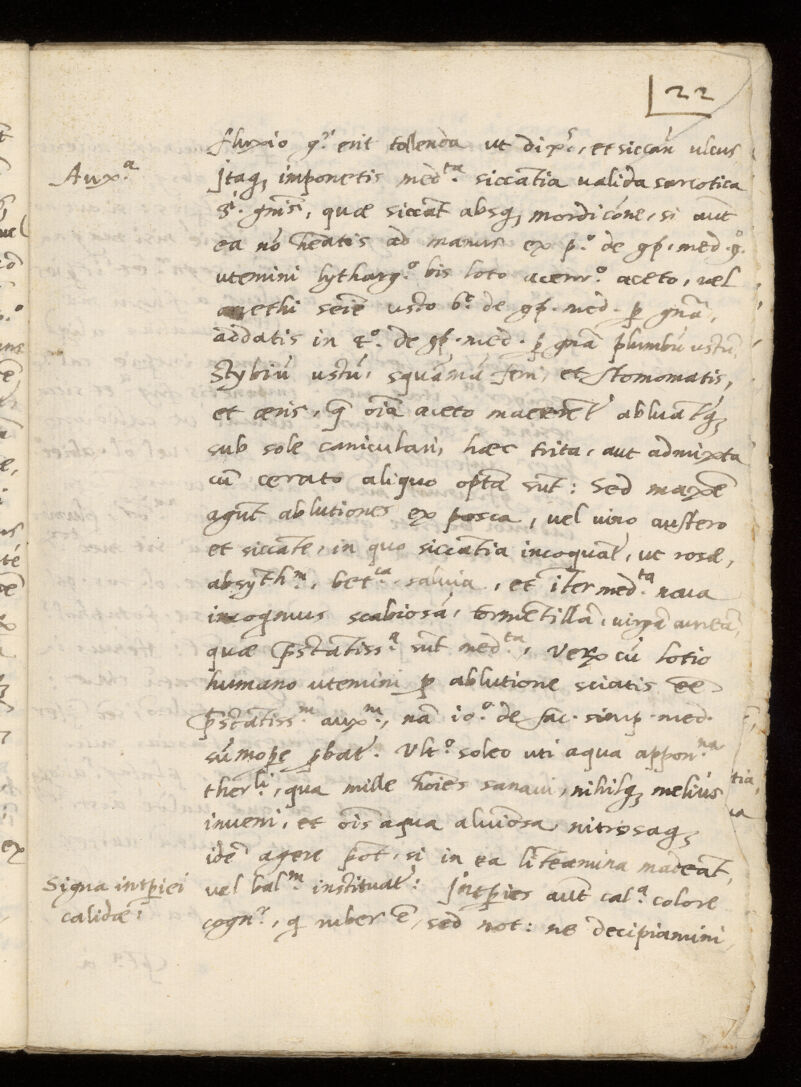 22
fluxio g.r erit tollenda ut dix.i, et siccan̄ ulcus
Aux.a
Itaq; imponetis med.ta siccātia valida sarcotica
gn̄is, quæ siccāt absq; mordicōne, si aut̄
ea nō hēatis ad manus ex p.o de gn̄. med. g.o
utemini lytharg.o bis loto acerr.o aceto, vel
anethi seīe usto 6.o de gn̄. med. p gn̄a,
addatis in 4.o de gn̄. med. p gn̄a plumbū ustū,
stybiū ustū, squāmā ferri, et stomomatis,
et æris, q̄ oīa aceto macerent.r abluāt.rq;
sub sole caniculari, hæc trita, aut admixta
cū cerato aliquo optā sūt: Sed maxē
agūt ablutiones ex posca, vel vino austero
et siccāte, in quo siccātia incoquāt.r, ut rosæ,
absynth.m, bet.ca salvia, et iter med.ta nova
incoqimus scabiosā, tormētillā, virgā aureā,
quæ p̄stātiss.a sūt med.ta, Verū cū lotio
humano utemini p ablutione sciatis ēē
p̄stātiss.m aux.m, nā io.o de fac. simp. med.
sūmopē pbat.r. Ult.o soleo uti aqua appon.na
therli, qua mille hoīes sanavi, nihilq; melius
inveni, et oīs aqua alumōsa, nitrosaq;
idē agere pōt, si in ea līteamina madeāt,
Signa intp̄iei
calidæ:
vel bal.m instituāt.r: Intp̄ies aut̄ cal.a colore
cogn.r, q̄ ruber ē, sed not: ne decipiamini